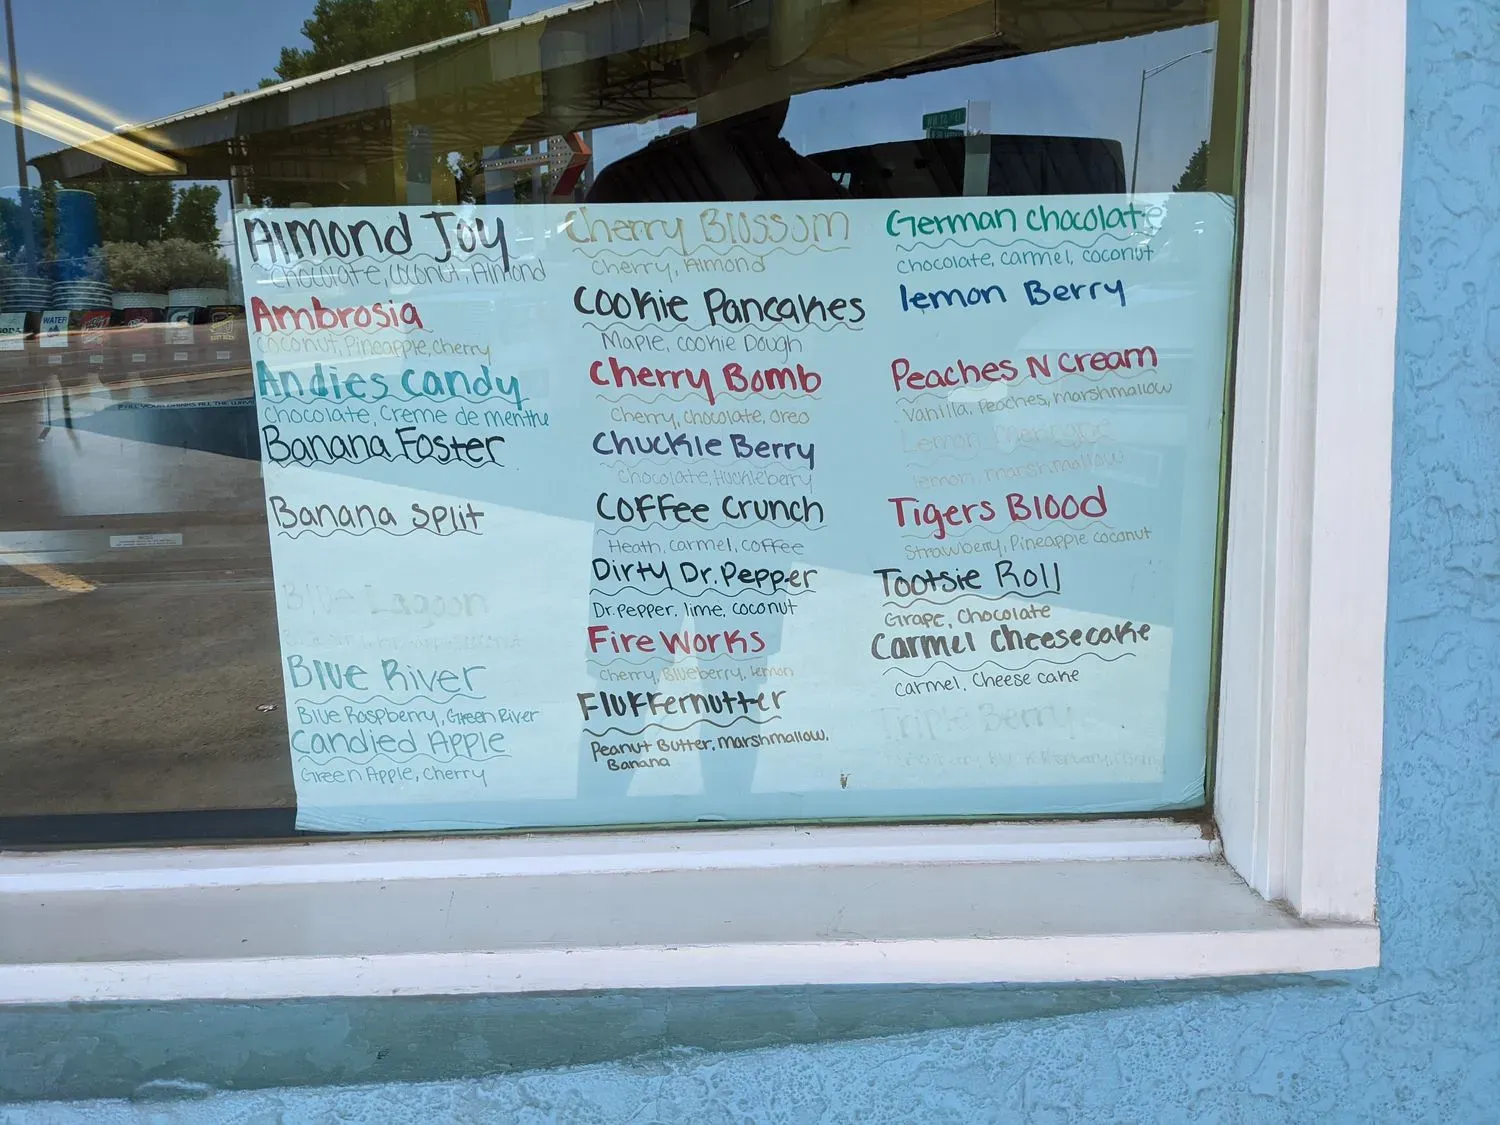 Almond Joy
Chocolate, coconut, Almond
Ambrosia
coconut, Pineapple, cherry
Andies candy
chocolate, Creme de menthe
Banana Foster
Banana split
Blue Lagoon
Blue River
Blue Raspberry, Green River
Candied Apple
Green Apple, cherry
Cherry Blossom
Cherry, Almond
Cookie Pancakes
Maple, cookie Dough
Cherry Bomb
Cherry, chocolate, oreo
Chuckle Berry
Chocolate, Huckleberry
Coffee Crunch
Heath, carmel, coffee
Dirty Dr. Pepper
Dr. pepper, lime, coconut
Fire Works
Cherry, Blueberry, lemon
Fluffernutter
Peanut Butter, marshmallow,
Banana
German chocolate
chocolate, carmel, coconut
lemon Berry
Peaches N Cream
Vanilla, Peaches, marshmallow
Lemon
lemon, marshmallow
Tigers Blood
Strawberry, Pineapple coconut
Tootsie Roll
Grape, Chocolate
Carmel Cheesecake
Carmel, Cheese cake
Triple Berry
WATER